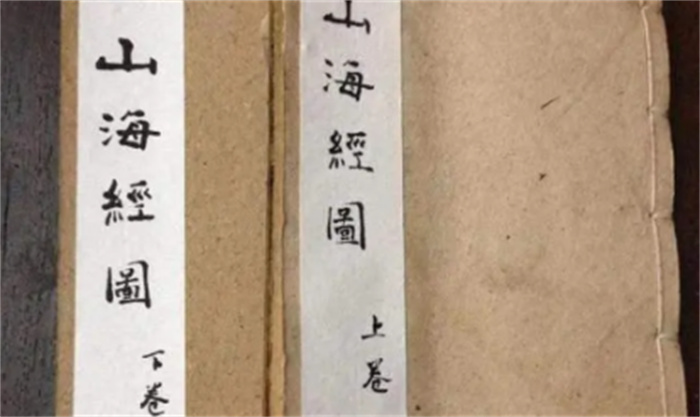 山海經圖
下卷
山海經圖
上卷